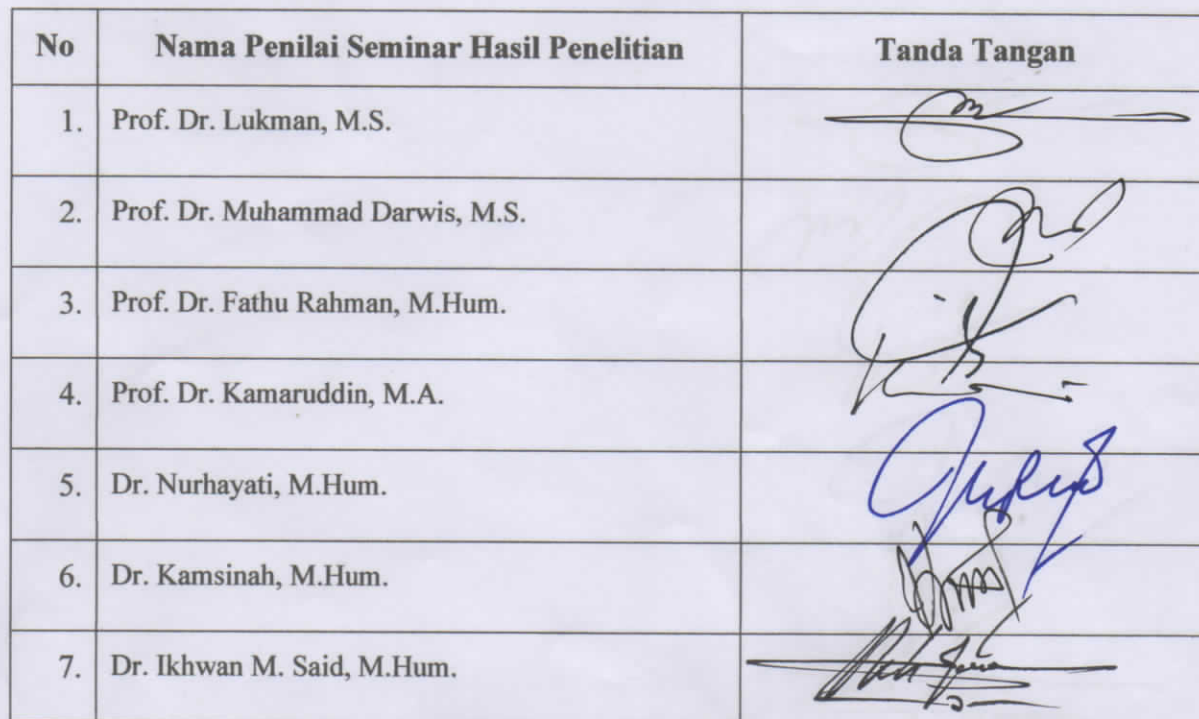 No Nama Penilai Seminar Hasil Penelitian Tanda Tangan
1. Prof. Dr. Lukman, M.S.
2. Prof. Dr. Muhammad Darwis, M.S.
3. Prof. Dr. Fathu Rahman, M.Hum.
4. Prof. Dr. Kamaruddin, M.A.
5. Dr. Nurhayati, M.Hum.
6. Dr. Kamsinah, M.Hum.
7. Dr. Ikhwan M. Said, M.Hum.